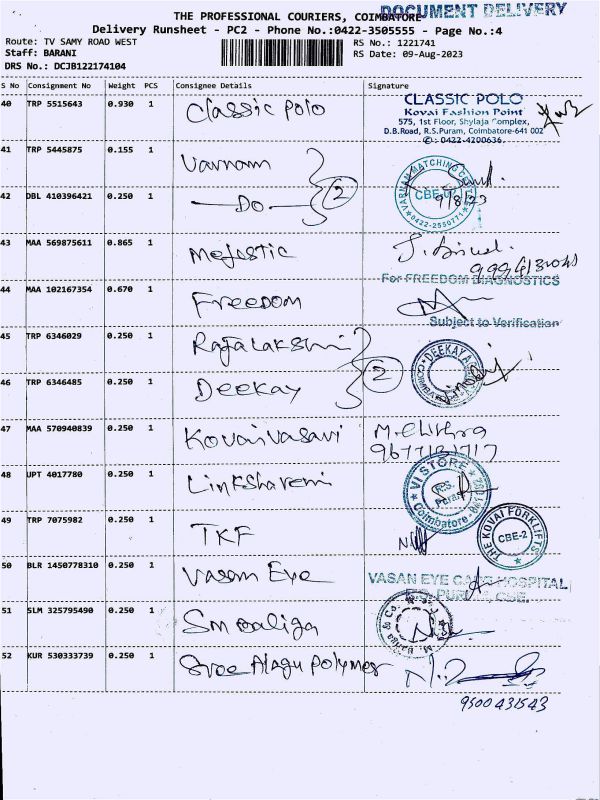 DOCUMENT DELIVERY
THE PROFESSIONAL COURIERS, COIMBATORE
Delivery Runsheet - PC2 - Phone No.:0422-3505555 - Page No.:4
Route: TV SAMY ROAD WEST
Staff: BARANI
DRS No.: DCJB122174104
RS No.: 1221741
RS Date: 09-Aug-2023
S No Consignment No Weight PCS Consignee Details Signature
40 TRP 5515643 0.930 1 Classic Polo
CLASSIC POLO
Kovai Fashion Point
575, 1st Floor, Shylaja Complex,
D.B.Road, R.S.Puram, Coimbatore-641 002
✆: 0422-4200636.
41 TRP 5445875 0.155 1 Varnam
42 DBL 410396421 0.250 1 —Do— 2
VARNAM MATCHING
CBE
0422-2550771
9/8/23
43 MAA 569875611 0.865 1 Mejestic
44 MAA 102167354 0.670 1 Freedom
For FREEDOM DIAGNOSTICS
Subject to Verification
45 TRP 6346029 0.250 1 Rajalakshmi
46 TRP 6346485 0.250 1 Deekay 2
DEEKAY
47 MAA 570940839 0.250 1 Kovai Vasavi
48 UPT 4017780 0.250 1 Linksharemi
VI STORE
R.S. Puram
Coimbatore
49 TRP 7075982 0.250 1 TKF
THE KOVAI FORKLIFTS
CBE-2
50 BLR 1450778310 0.250 1 Vasan Eye
VASAN EYE CARE HOSPITAL
51 SLM 325795490 0.250 1 Sm Baliga
M. Baliga & Co.
52 KUR 530333739 0.250 1 Sree Alagu Polymer
9500431543